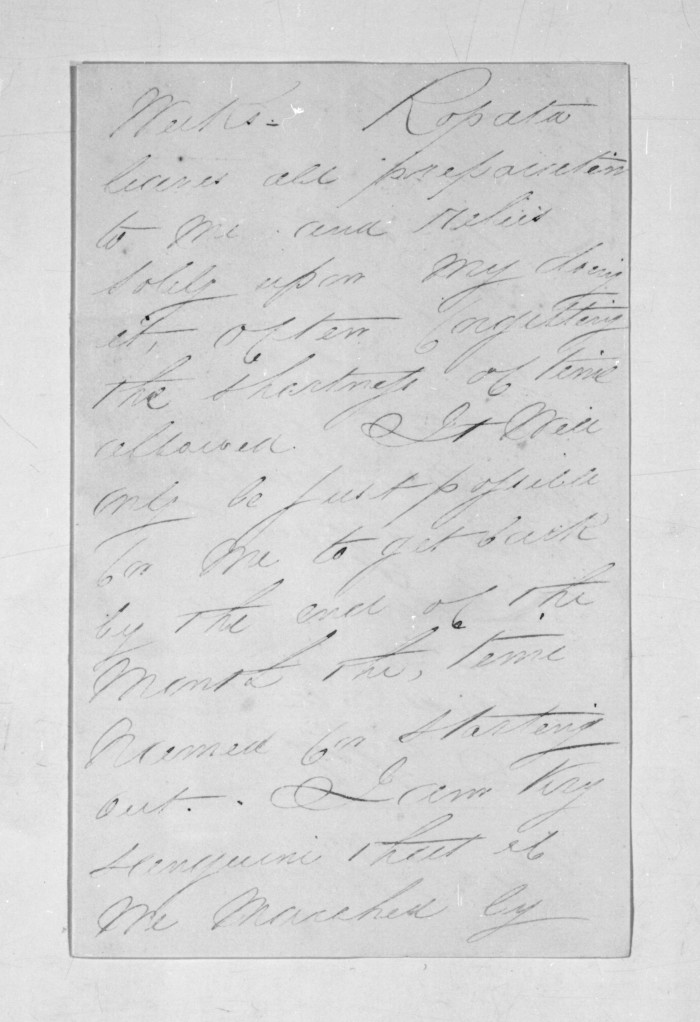 Weeks - Ropata
leaves all preparation
to me and relies
solely upon my doing
it, often forgetting
the shortness of time
allowed. It will
only be just possible
for me to get back
by the end of the
month the, time
named for starting
out. I am very
sanguine that if
we marched by